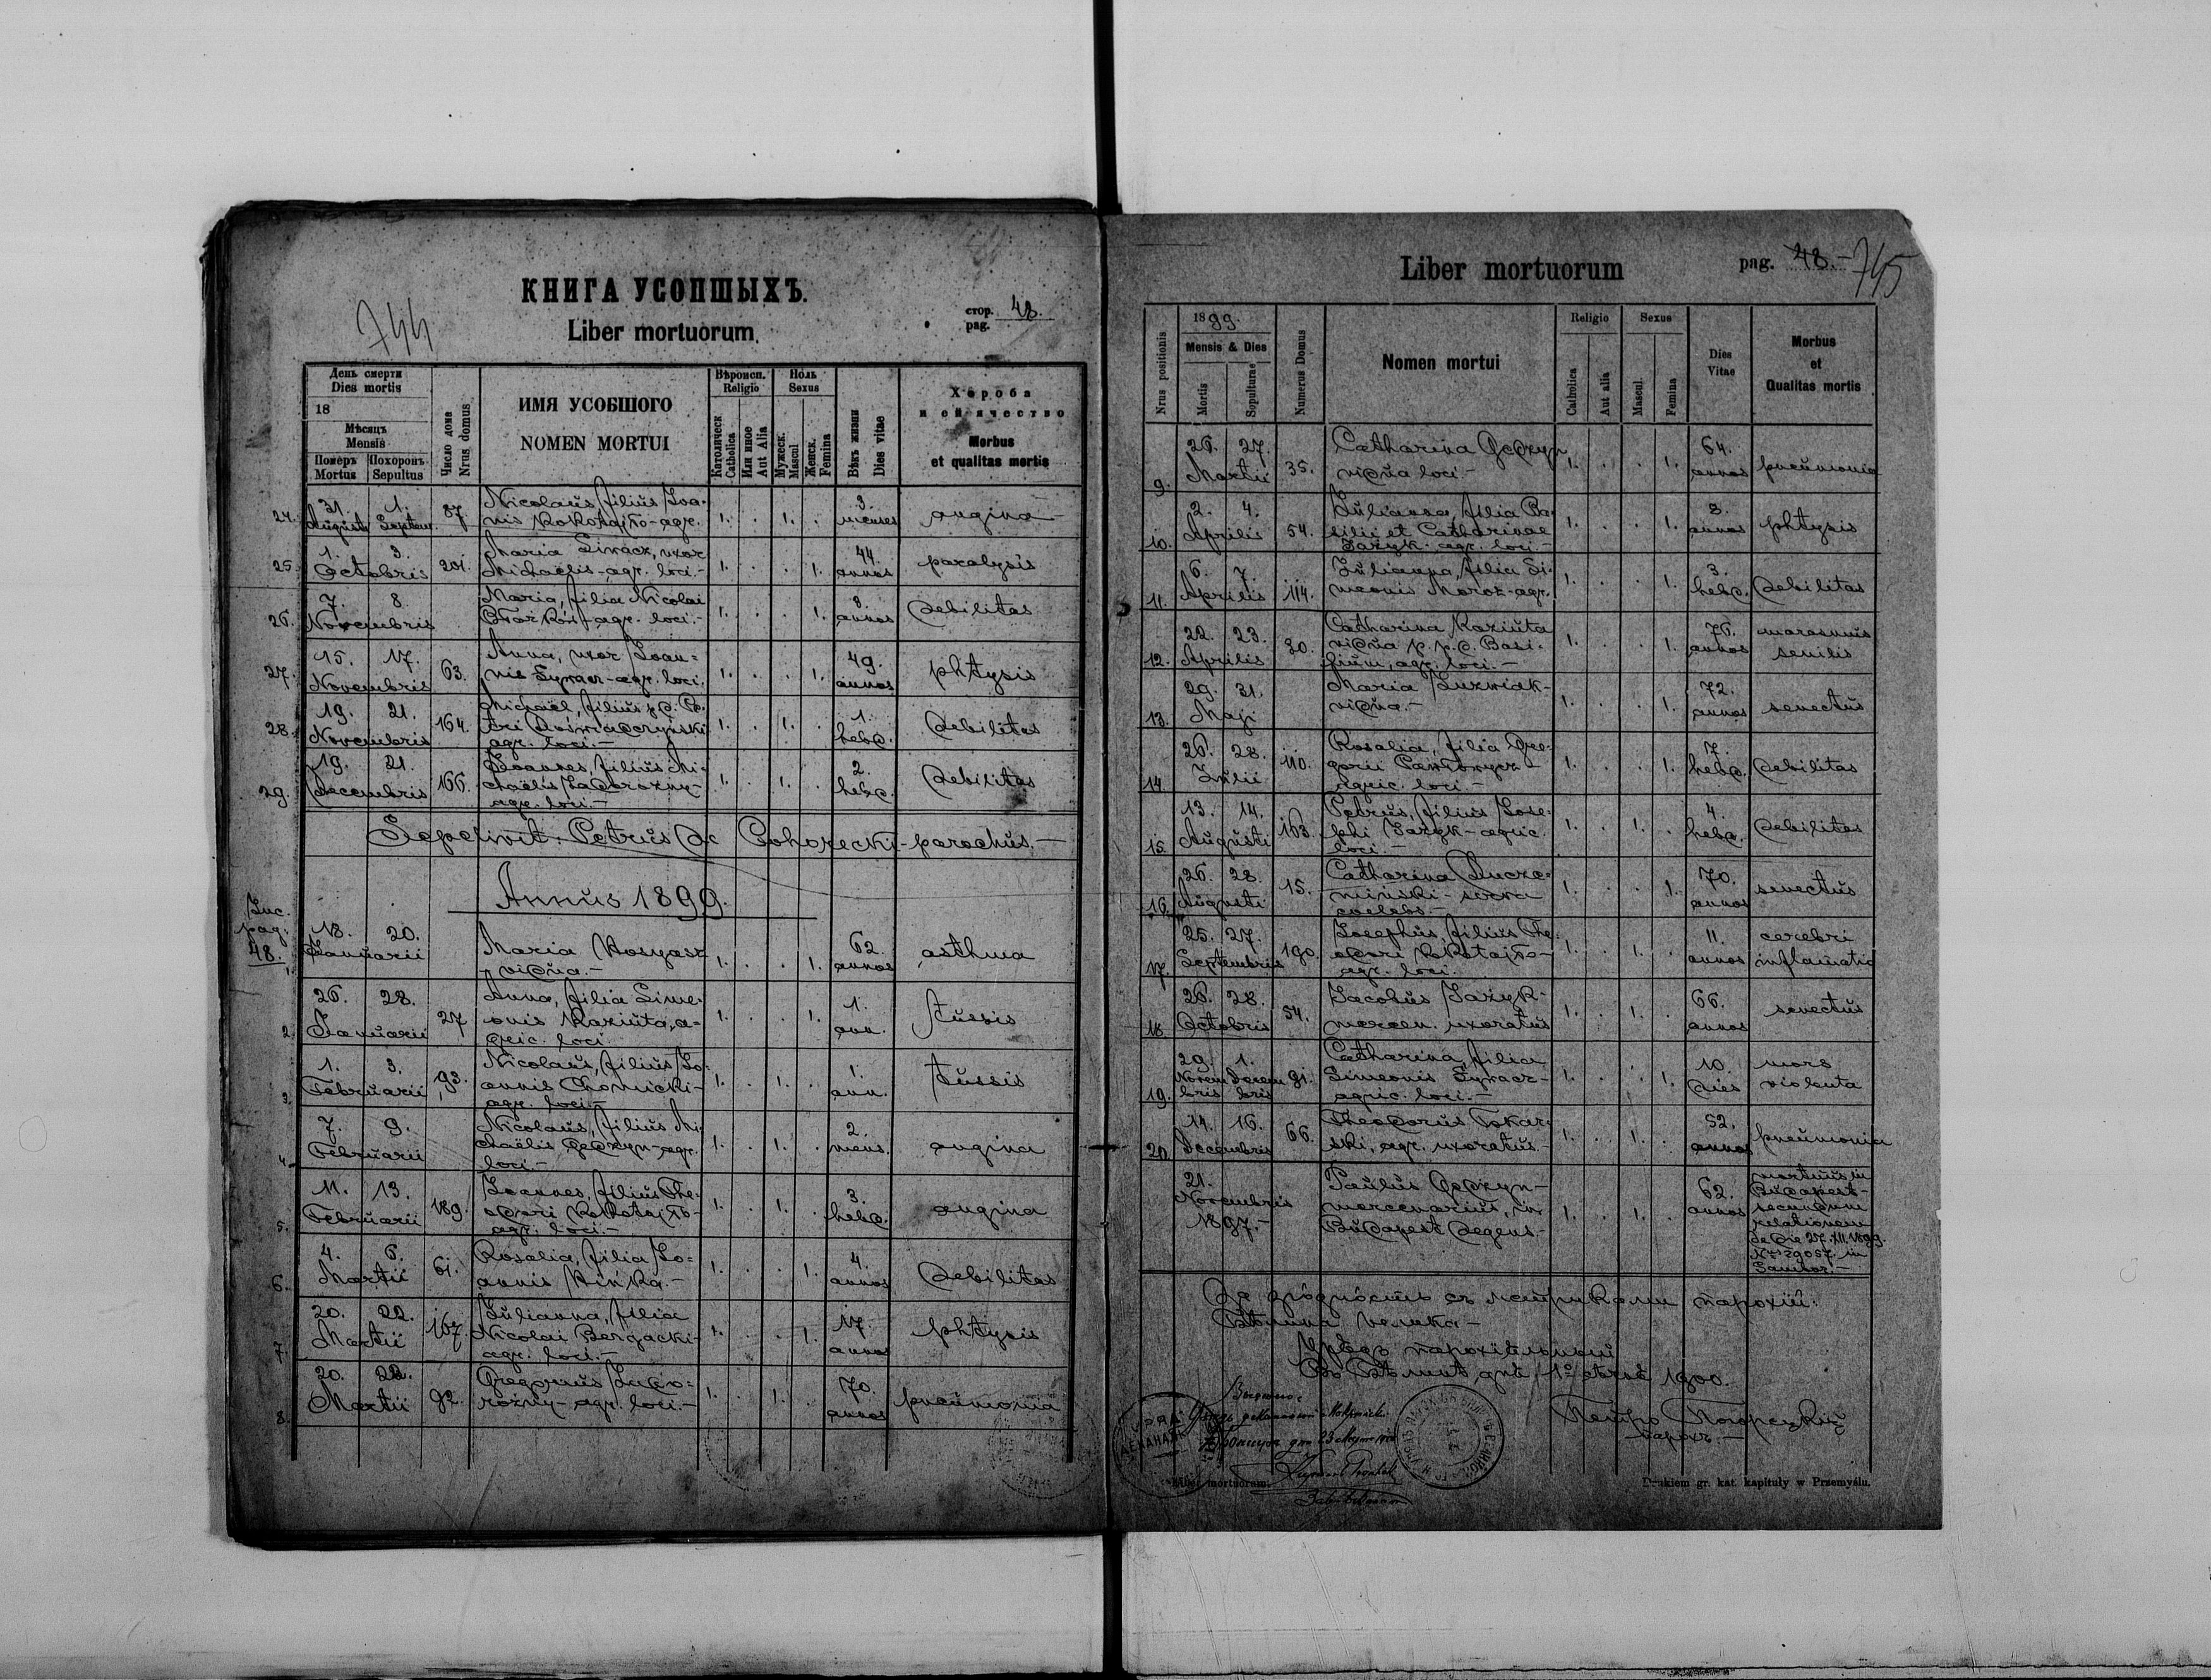 744
КНИГА УСОПШЫХЪ.
Liber mortuorum.
стор. pag. 48.
День смерти
Dies mortis
18
Мѣсяцъ
Mensis
Померъ Mortus
Похоронъ Sepultus
Число дома
Nrus domus
ИМЯ УСОБШОГО
NOMEN MORTUI
Вѣроисп.
Religio
Католическ
Catholica
Или иное
Aut Alia
Поль
Sexus
Мужеск.
Mascul
Женск.
Femina
Вѣкъ жизни
Dies vitae
Хороба
и ей ячество
Morbus
et qualitas mortis
24. 31. Augusti 1. Septem. 87. Nicolaus, filius Joa-
nis Kołotajło - agr. 1. . 1. . 3. menses angina
25. 1. 3. Octobris 201. Maria Siwacz, uxor
Michaelis - agr. loci. - 1. . . 1. 44. annos paralysis
26. 7. 8. Novembris Maria, filia Nicolai
agr. loci. - 1. . . 1. 3. annos debilitas
27. 15. 17. Novembris 63. Anna, uxor Joan-
nis Sywacz - agr. loci. 1. . . 1. 49. annos phtysis
28. 19. 21. Novembris 164. Michaël, filius p.d. Pe-
tri Doświadczyński
agr. loci. - 1. . 1. . 1. hebd. debilitas
29. 19. 21. Decembris 166. Joannes, filius Mi-
chaëlis Zadorożny -
agr. loci. - 1. . 1. . 2. hebd. debilitas
Sepelivit: Petrus de Pohorecki - parochus. -
Annus 1899.
Inc.
pag.
48.
1. 18. 20. Januarii Maria Kosyasz
- vidua. - 1. . . 1. 62. annos asthma
2. 26. 28. Januarii 27 Anna, filia Sime-
onis Kaziuta, a-
gric. loci. 1. . . 1. 1. ann. tussis
3. 1. 3. Februarii 93. Nicolaus, filius Jo-
annis Chomicki -
agr. loci. - 1. . 1. . 1. ann. tussis
4. 7. 9. Februarii Nicolaus, filius Mi-
chaëlis Gedzyn - agr.
loci. - 1. . 1. . 2. mens. angina
5. 11. 13. Februarii 189. Joannes, filius The-
odori Kołotajło -
agr. loci. - 1. . 1. . 3. hebd. angina
6. 4. 6. Martii 61. Rosalia, filia Jo-
annis Hińka. - 1. . . 1. 4. annos debilitas
7. 20. 22. Martii 167. Julianna, filia
Nicolai Bergacki -
agr. loci. - 1. . . 1. 17. annos phtysis
8. 20. 22. Martii 92. Gregorius Zado-
rożny - agr. loci. - 1. . 1. . 70. annos pneumonia
Liber mortuorum
pag. 48. - 745
Nrus positionis
1899.
Mensis & Dies
Mortis
Sepulturae
Numerus Domus
Nomen mortui
Religio
Catholica
Aut alia
Sexus
Mascul.
Femina
Dies
Vitae
Morbus
et
Qualitas mortis
9. 26. 27. Martii 35. Catharina Gedzyn
vidua loci - 1. . . 1. 64. annos pneumonia
10. 2. 4. Aprilis 54. Julianna, filia Ba-
silii et Catharinae
Jazyk - agr. loci. - 1. . . 1. 8. annos phtysis
11. 6. 7. Aprilis 114. Julianna, filia Si-
meonis Moroz - agr. 1. . . 1. 3. hebd. debilitas
12. 22. 23. Aprilis 30. Catharina Kaziuta
vidua p. p. d. Basi-
lium, agr. loci. - 1. . . 1. 76. annos marasmus
senilis
13. 29. 31. Maji Maria Luzniak -
vidua. - 1. . . 1. 72. annos senectus
14. 26. 28. Julii 110. Rosalia, filia Gre-
gorii Pawłowycz -
agric. loci. - 1. . . 1. 7. hebd. debilitas
15. 13. 14. Augusti 163. Petrus, filius Jose-
phi Jazyk - agric.
loci. - 1. . 1. . 4. hebd. debilitas
16. 26. 28. Augusti 15. Catharina
coelebs. - 1. . . 1. 70. annos senectus
17. 25. 27. Septembris 190. Josephus, filius The-
odori Kołotajło -
agr. loci. 1. . 1. . 11. annos cerebri
inflamatio
18. 26. 28. Octobris 54. Jacobus Jazyk -
mercen. uxoratus 1. . 1. . 66. annos senectus
19. 29. Novembris 1. Decembris 91. Catharina, filia
Simeonis Sywacz -
agric. loci. - 1. . . 1. 10. dies mors
violenta
20. 14. 16. Decembris 66. Theodorus Tokar-
ski, agr. uxoratus. - 1. . 1. . 52. annos pneumonia
21. Novembris 1897. - Paulus Gedzyn -
mercenarius, in
Budapest degens. - 1. . 1. . 62. annos mortuus in
Budapest -
secundum
relationem
de die 27. XII 1899.
Nr. 29057. in
Sambor. -
За згôдность съ метриками парохіи:
Бѣлина велика -
Урядъ парохіяльный
Въ Бѣлинѣ, дня 1о 1900.
Петро Погорецкій
парохъ. -
Liber mortuorum.
Drukiem gr. kat. kapituły w Przemyślu.